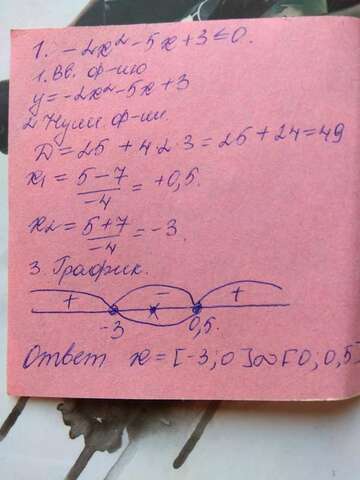 1. -2x²-5x+3≤0.
1. Вв. ф-ию
y=-2x²-5x+3
2. Нули ф-ии.
D=25+4·2·3=25+24=49
x₁ = (5-7)/(-4) = +0,5.
x₂ = (5+7)/(-4) = -3.
3. График.
+ - +
-3 0,5.
Ответ x=[-3;0]∞[0;0,5]